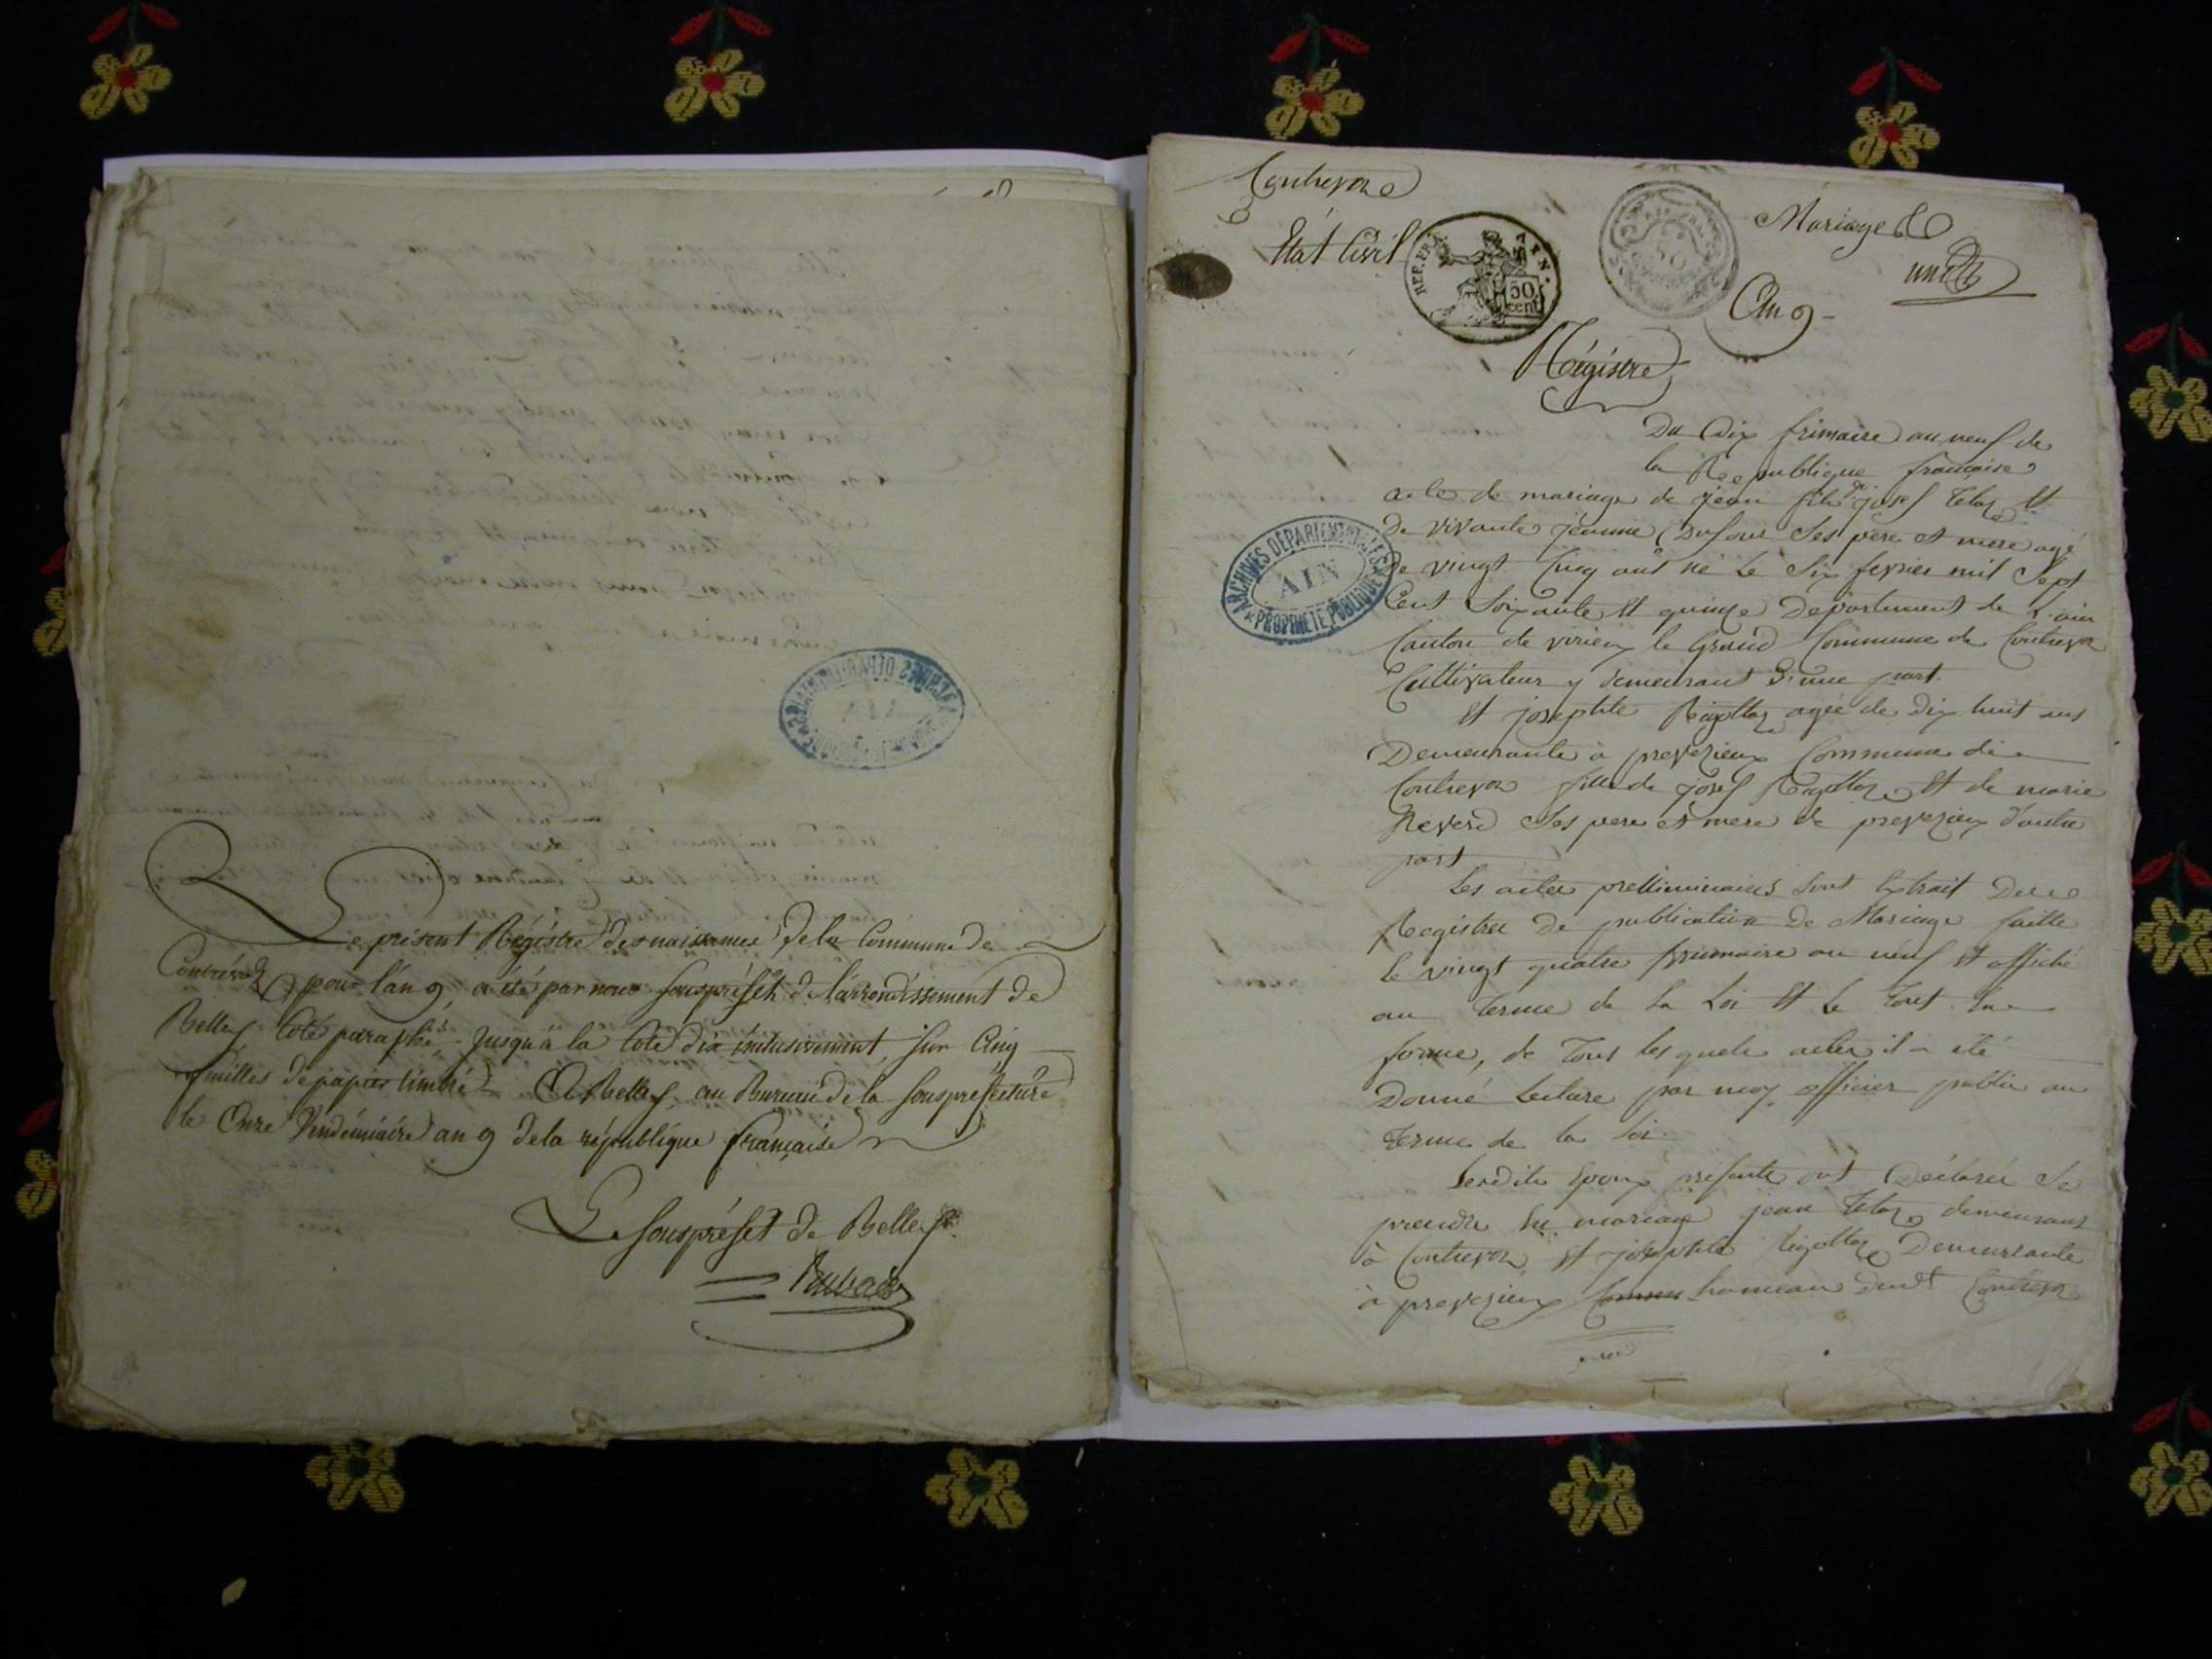 Le présent Régistre des naissances de la Commune de
Contrevoz pour l'an 9, a été par nous souspréfet de l'arrondissement de
Belley, coté paraphé jusqu'à la cote dix inclusivement, sur cinq
feuilles de papier timbré. A Belley, au Bureau de la souspréfecture
le Onze Vendémiaire an 9 de la république française
Le souspréfet de Belley
ARCHIVES DÉPARTEMENTALES
AIN
PROPRIÉTÉ PUBLIQUE
Contrevoz
Etat Civil
REP. FRA.
50
cent.
50
Mariage
An 9
Régistre
Du Dix frimaire an neuf de
la Republique francaise
acte de mariage de jean fils de josef et
De vivante jeanne Dufour ses pere et mere agé
De vingt cinq ans né le Six fevrier mil sept
Cent soixante et quinze Departement de L'ain
Canton de virieu le Grand Commune de Contrevoz
Cultivateur y demeurant D'une part.
Et josephte Rigottaz agée de Dix huit ans
Demeurante à preveyzieux Commune de
Contrevoz fille de josef Rigottaz et de marie
ses pere et mere de preveyzieux D'autre
part
Les actes prelliminaires sont Extrait Des
Registre De publication De Mariage faitte
le vingt quatre brumaire an neuf et affiché
au terme de la Loi et le Tout En
forme, de Tous lesquels actes il a été
Donné Lecture par moy officier public au
terme de la loi.
Lesdits Epoux présents ont Déclaré Se
prendre En mariage jean demeurant
à Contrevoz et josephte rigottaz Demeurante
à preveyzieux Commu hameau dudt Contrevoz